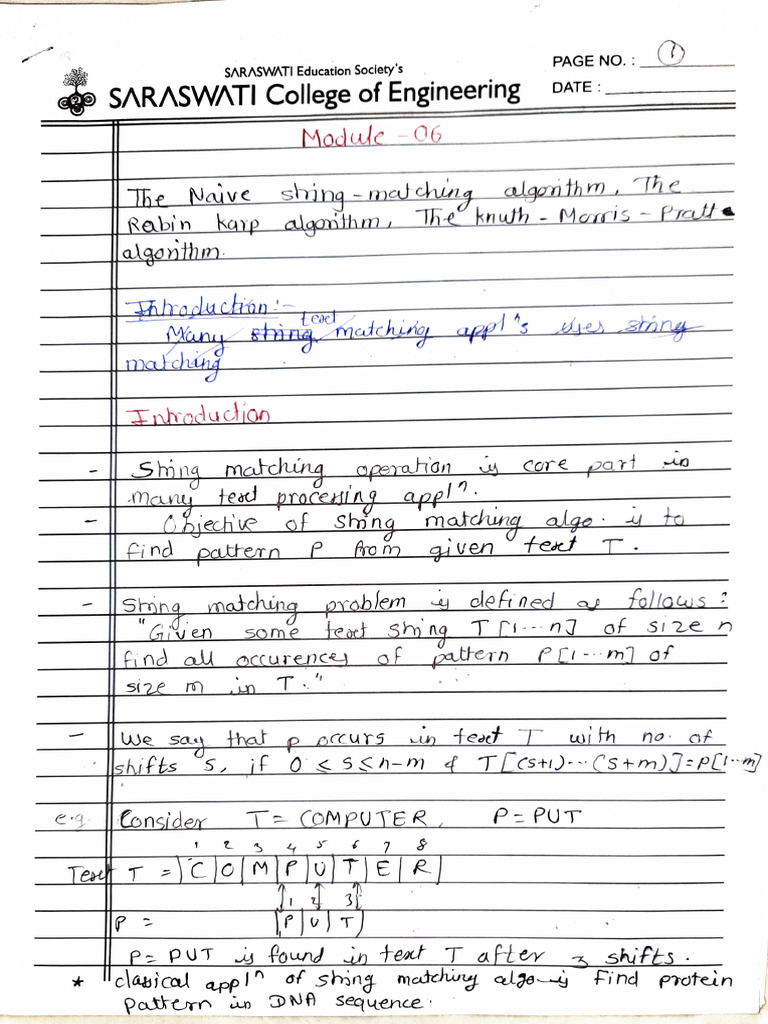 SARASWATI Education Society's
SARASWATI College of Engineering
PAGE NO. : 1
DATE :
Module - 06
The Naive string-matching algorithm, The
Rabin karp algorithm, The knuth - Morris - Pratt
algorithm.
Introduction:-
text
Many string matching appl^n's uses string
matching
Introduction
- String matching operation is core part in
many text processing appl^n.
- Objective of string matching algo. is to
find pattern P from given text T.
- String matching problem is defined as follows:
"Given some text string T[1---n] of size n
find all occurences of pattern P[1---m] of
size m in T."
- We say that p occurs in text T with no. of
shifts s, if 0 ≤ s ≤ n-m & T[(s+1)---(s+m)]=P[1---m]
e.g. Consider T = COMPUTER, P = PUT
1 2 3 4 5 6 7 8
Text T = |C|O|M|P|U|T|E|R|
1 2 3
P = |P|U|T|
P = PUT is found in text T after 3 shifts.
* classical appl^n of string matching algo is find protein
pattern in DNA sequence.